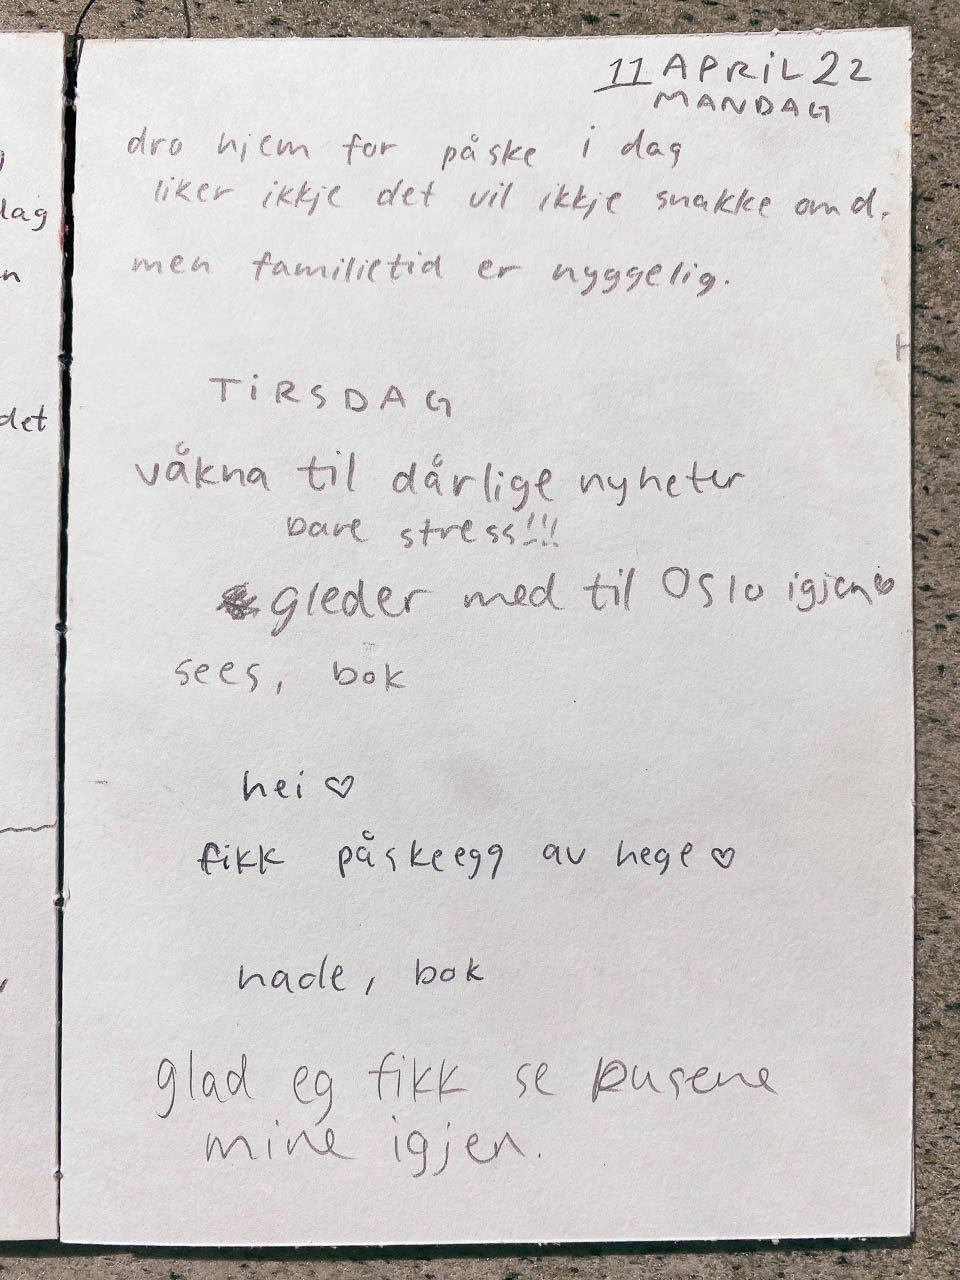 dag
n
det
11 APRIL 22
MANDAG
dro hjem for påske i dag
liker ikkje det vil ikkje snakke om d.
men familietid er hyggelig.
H
TIRSDAG
våkna til dårlige nyheter
bare stress!!!
gleder med til Oslo igjen♡
sees, bok
hei ♡
fikk påskeegg av hege ♡
hade, bok
glad eg fikk se pusene
mine igjen.